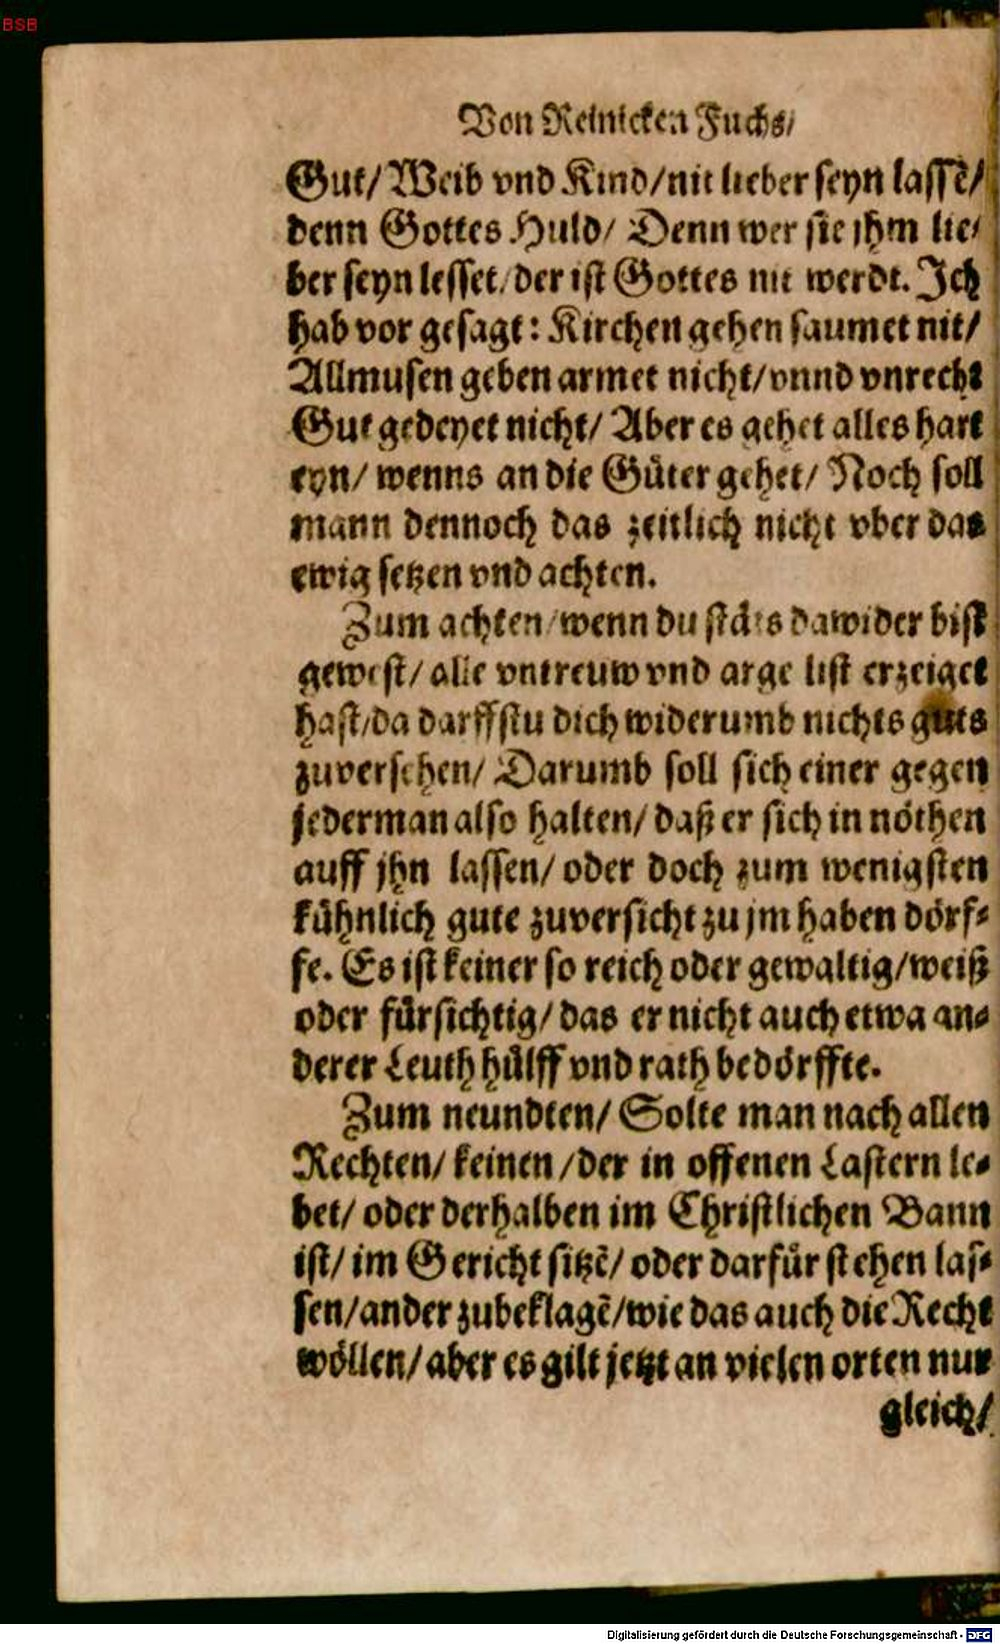 BSB
Von Reinicken Fuchs/
Gut/ Weib vnd Kind/nit lieber seyn lassẽ/
denn Gottes Huld/ Denn wer sie jhm lie/
ber seyn lesset/der ist Gottes nit werdt. Ich
hab vor gesagt: Kirchen gehen saumet nit/
Allmusen geben armet nicht/vnnd vnrecht
Gut gedeyet nicht/ Aber es gehet alles hart
eyn/ wenns an die Gůter gehet/ Noch soll
mann dennoch das zeitlich nicht vber das
ewig setzen vnd achten.
Zum achten/wenn du ståts dawider bist
gewest/ alle vntreuw vnd arge list erzeiget
hast/da darffstu dich widerumb nichts guts
zuversehen/ Darumb soll sich einer gegen
jederman also halten/ daß er sich in nöthen
auff jhn lassen/ oder doch zum wenigsten
kůhnlich gute zuversicht zu jm haben dörf-
fe. Es ist keiner so reich oder gewaltig/weiß
oder fůrsichtig/ das er nicht auch etwa an-
derer Leuth hůlff vnd rath bedörffte.
Zum neundten/ Solte man nach allen
Rechten/ keinen/der in offenen Lastern le-
bet/ oder derhalben im Christlichen Bann
ist/ im Gericht sitzẽ/ oder darfůr stehen las-
sen/ander zubeklagẽ/wie das auch die Recht
wöllen/ aber es gilt jetzt an vielen orten nur
gleich/
Digitalisierung gefördert durch die Deutsche Forschungsgemeinschaft - DFG